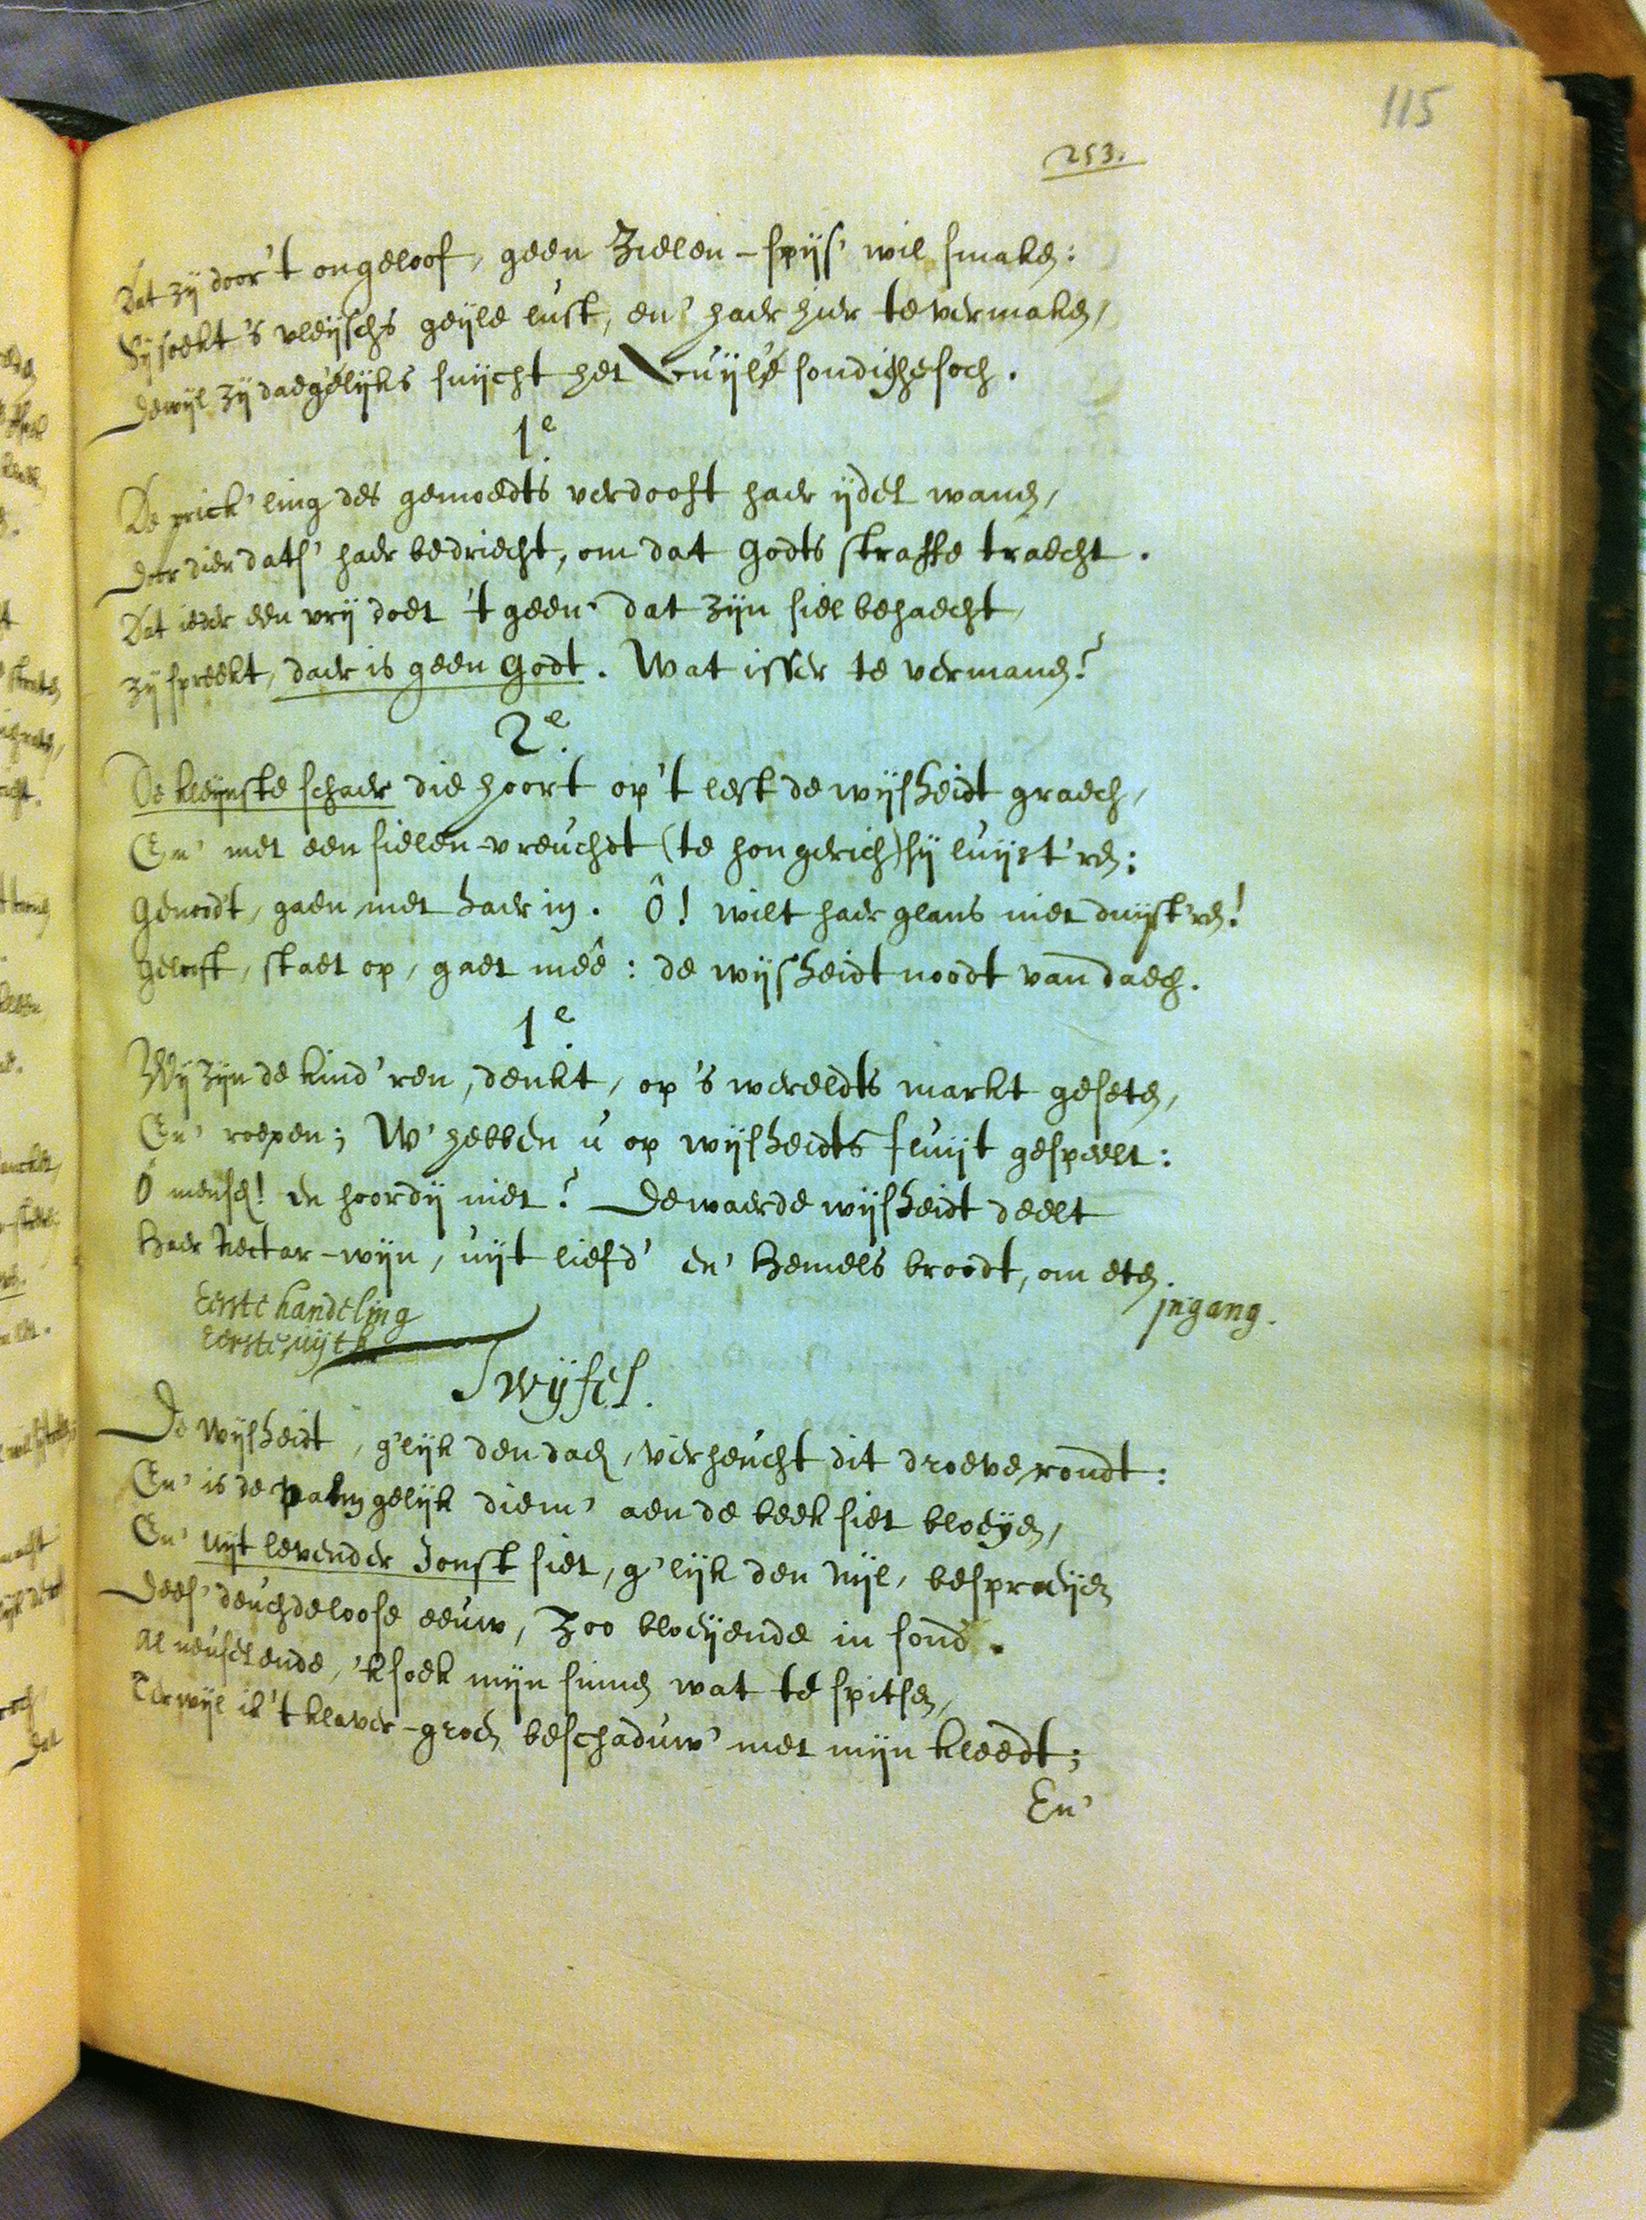 115
253.
Dat zij door 't ongeloof, geen Zielen-spijs' wil smaken:
Sij soekt 's vleijschs geijle lust, en' haer hier te vermaken,
Dewijl zij daegelijks suijcht het vuijle sondighe soch.
1e.
De prick'ling des gemoedts verdooft haer ijdel wanen,
Door dien dats' haer bedriecht, om dat Godts straffe traecht.
Dat ieder een vrij doet 't geen dat zijn siel behaecht,
Zij spreekt, daer is geen Godt. Wat isser te vermanen?
2e.
De kleijnste schaer die hoort op 't lest de wijsheidt graech,
En' met een sielen-vreucht (te hongerich) sij luijst'ren:
Genoodt, gaen met haer in. Ô! wilt haer glans niet duijst'ren!
Gelooft, staet op, gaet meê: de wijsheidt noodt van daech.
1e.
Wij zijn de kind'ren, denkt, op 's wereldts markt geseten,
En' roepen; W' hebben u op wijsheidts fluijt gespeelt:
Ô mensch! en hoordij niet? De waerde wijsheidt deelt
Haer Nectar-wijn, uijt liefd' en' Hemels broodt, om eten.
Eerste handeling
Eerste uijtk.
ingang.
Twijfel.
De Wijsheidt, g'lijk den dach, verheucht dit droeve rondt:
En' is de palm gelijk diem' aen de beek siet bloeijen,
En' uijt levender Jonst siet, g'lijk den Nijl, bespraeijen
Dees' deuchdeloose eeuw, Zoo bloeijende in sond.
Al neuselende, 'k soek mijn sinnen wat te spitsen,
Terwijl ik 't klaver-groen beschaduw' met mijn kleedt;
En'